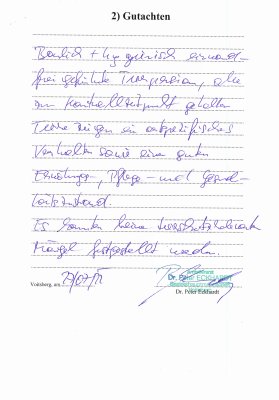 2) Gutachten
Baulich + hygienisch einwand-
frei geführte Tierpension, alle
zum Kontrollzeitpunkt gehalten
Tiere zeigen ein artspezifisches
Verhalten sowie einen guten
Ernährungs-, Pflege- und Gesund-
heitszustand.
Es konnten keine tierschutzrelevanten
Mängel festgestellt werden.
Voitsberg, am
Dr. Peter ECKHARDT
Dr. Peter Eckhardt